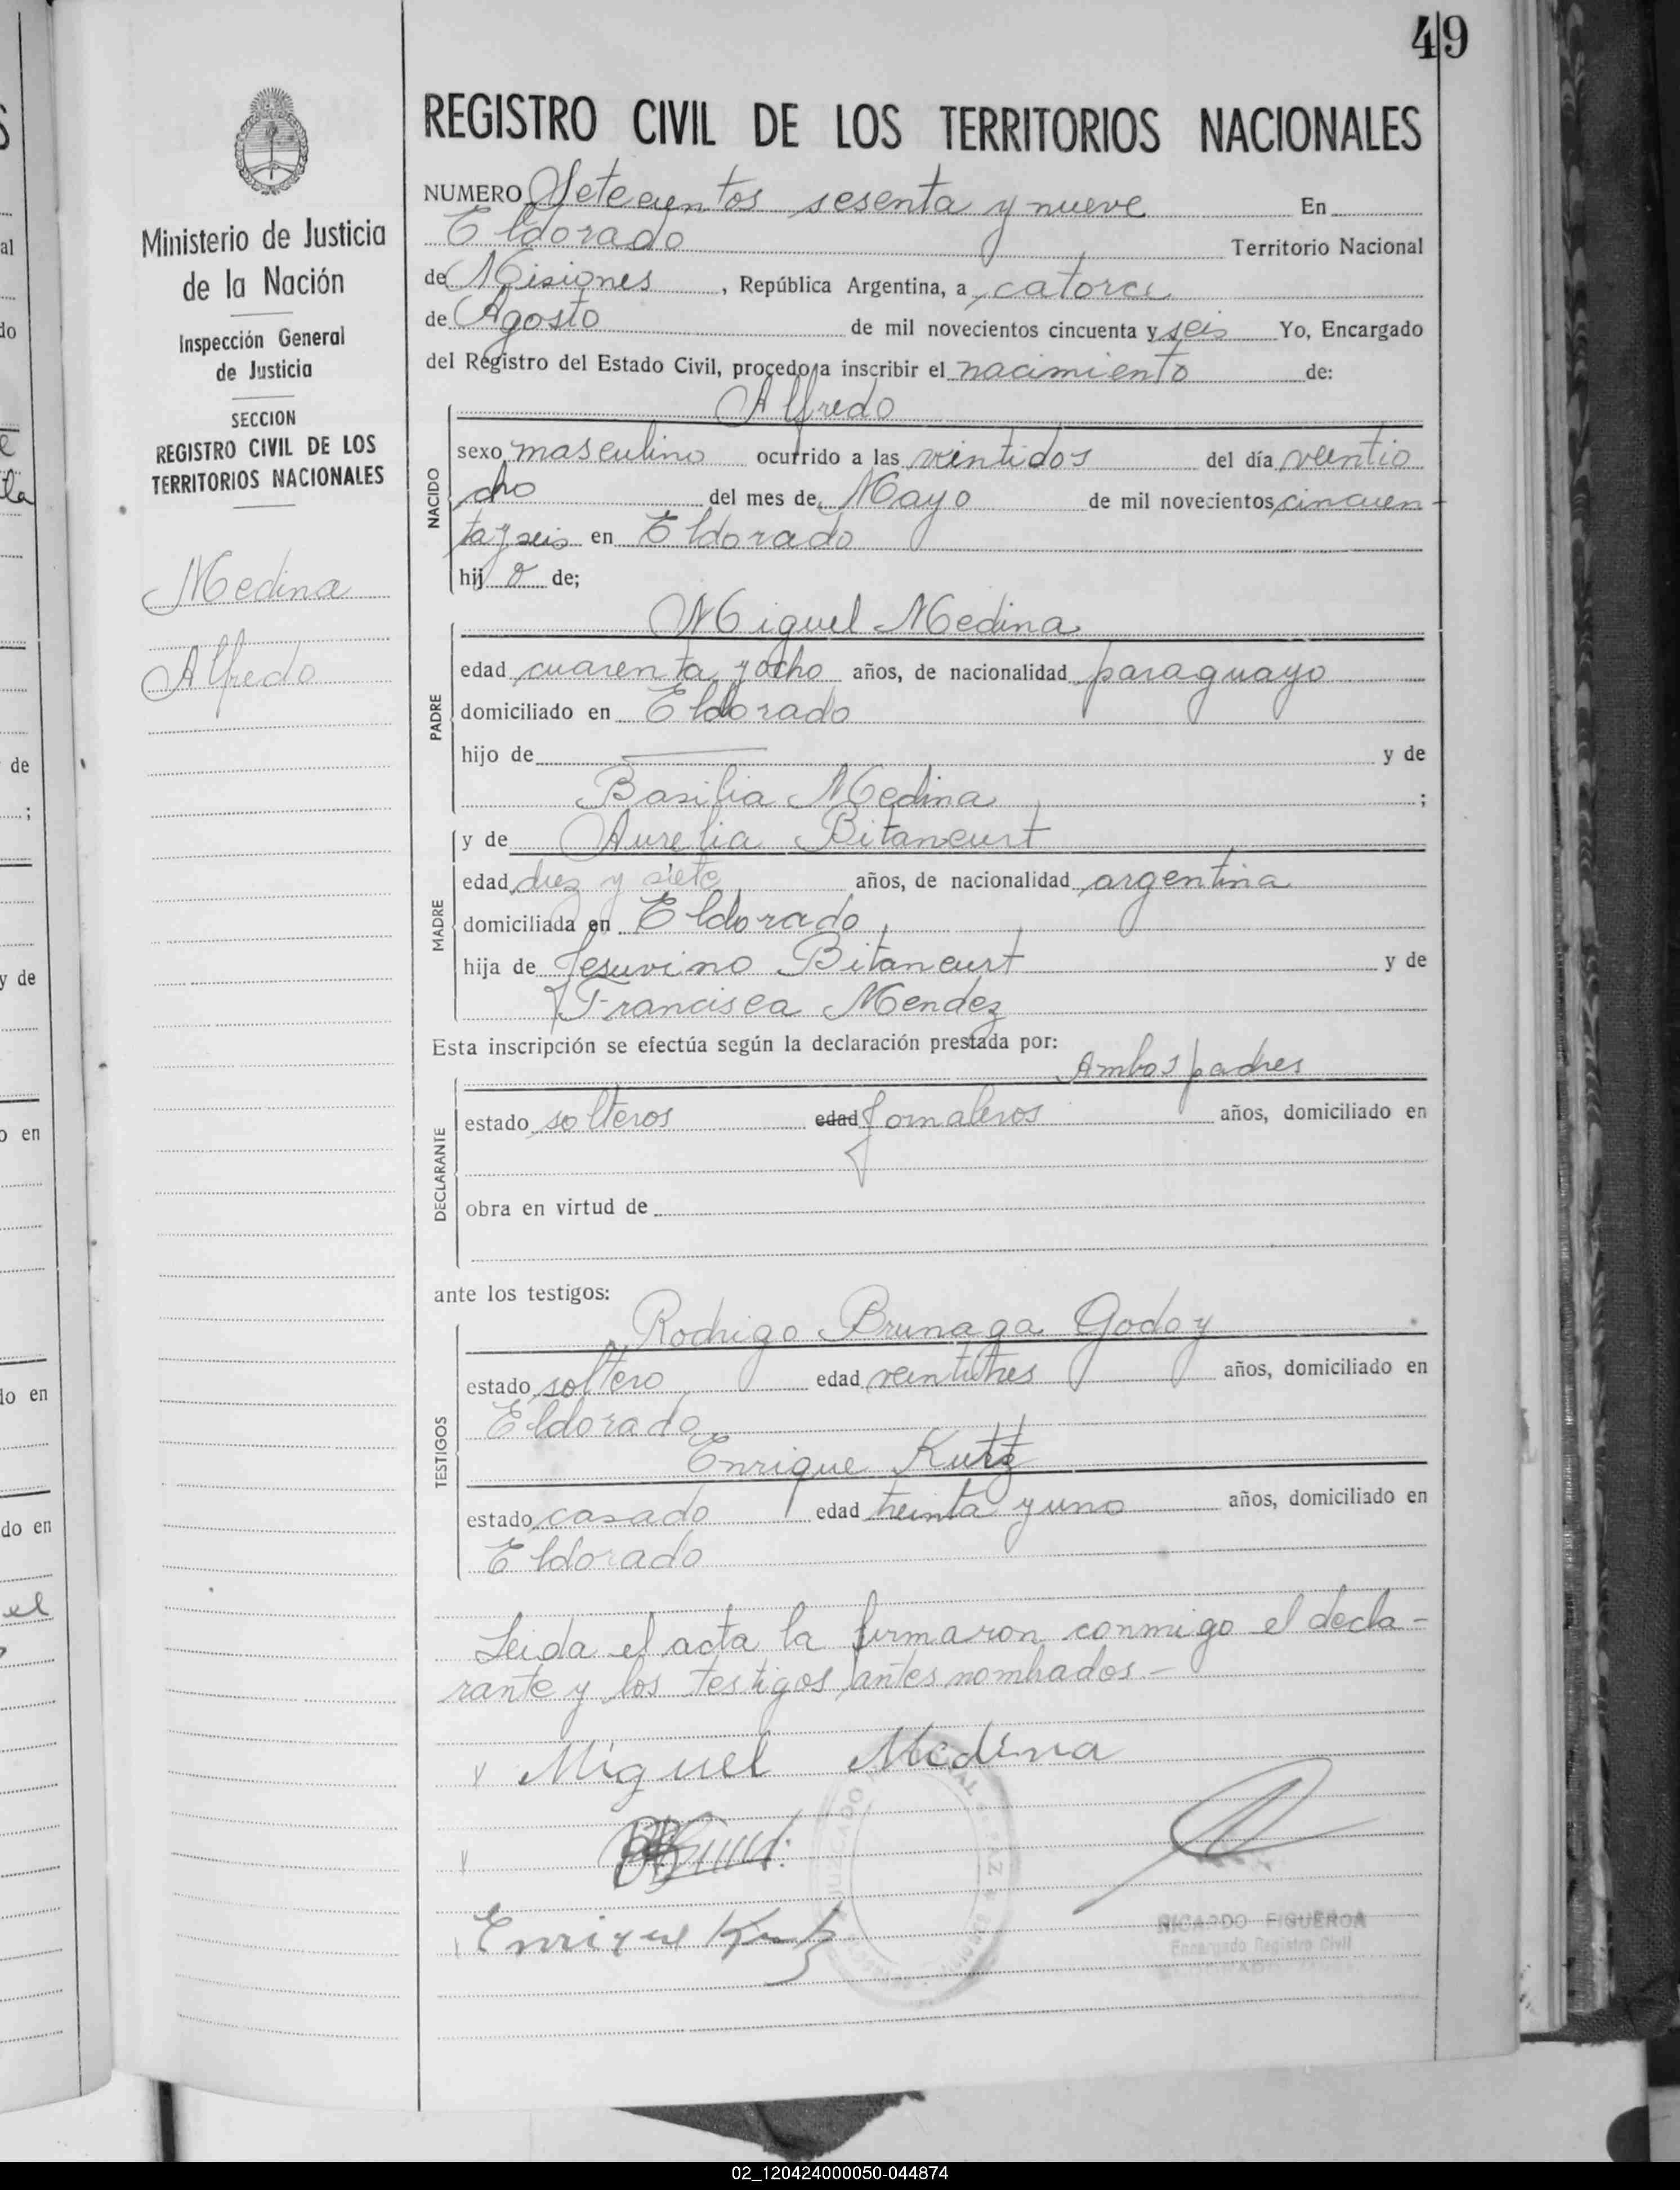 49
REGISTRO CIVIL DE LOS TERRITORIOS NACIONALES
Ministerio de Justicia
de la Nación
Inspección General
de Justicia
SECCION
REGISTRO CIVIL DE LOS
TERRITORIOS NACIONALES
Medina
Alfredo
NUMERO Setecientos sesenta y nueve En
Eldorado Territorio Nacional
de Misiones, República Argentina, a catorce
de Agosto de mil novecientos cincuenta y seis Yo, Encargado
del Registro del Estado Civil, procedo a inscribir el nacimiento de:
NACIDO
Alfredo
sexo masculino ocurrido a las veintidos del día ventio
cho del mes de Mayo de mil novecientos cincuen-
ta y seis en Eldorado
hijo de;
PADRE
Miguel Medina
edad cuarenta y ocho años, de nacionalidad paraguayo
domiciliado en Eldorado
hijo de — y de
Basilia Medina ;
MADRE
y de Aurelia Bitancurt
edad diez y siete años, de nacionalidad argentina
domiciliada en Eldorado
hija de Jesuvino Bitancurt y de
Francisca Mendez
Esta inscripción se efectúa según la declaración prestada por:
DECLARANTE
Ambos padres
estado solteros edad Jornaleros años, domiciliado en
obra en virtud de
ante los testigos:
TESTIGOS
Rodrigo Brunaga Godoy
estado soltero edad veintitres años, domiciliado en
Eldorado
Enrique Kutz
estado casado edad treinta y uno años, domiciliado en
Eldorado
Leida el acta la firmaron conmigo el decla-
rante y los testigos antes nombrados.-
Miguel Medina
Enrique Kutz
RICARDO FIGUEROA
Encargado Registro Civil
02_120424000050-044874